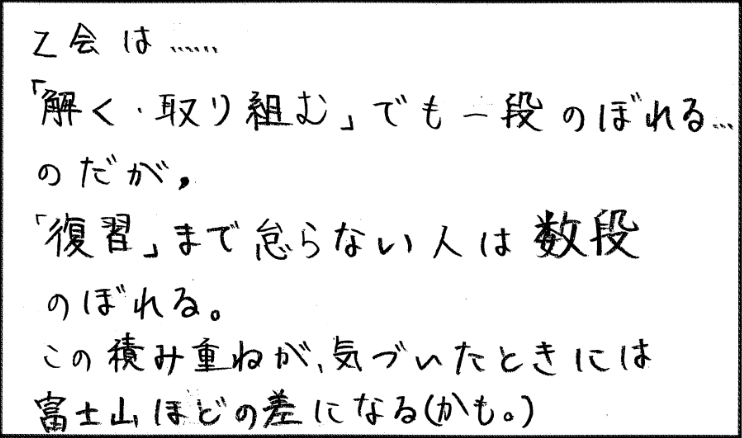 Z会は……
「解く・取り組む」でも一段のぼれる…
のだが,
「復習」まで怠らない人は数段
のぼれる。
この積み重ねが、気づいたときには
富士山ほどの差になる(かも。)